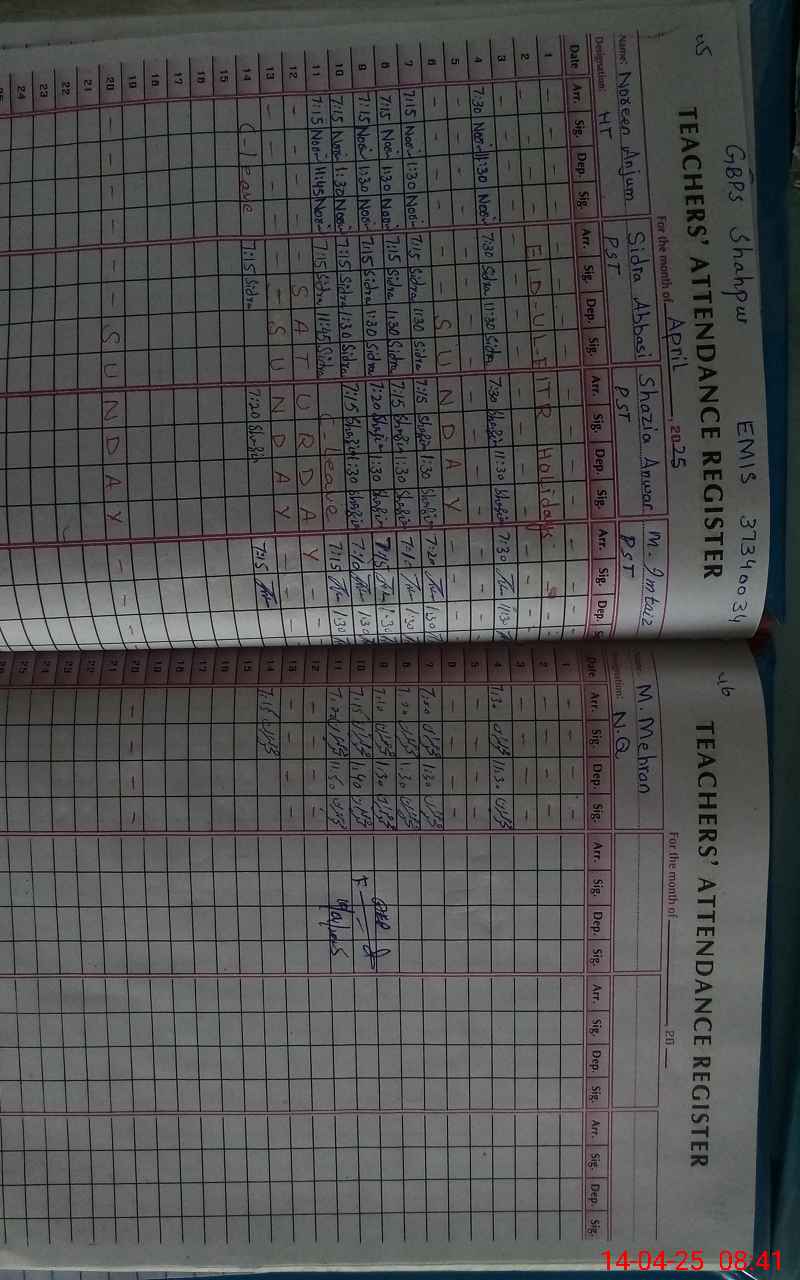 45
GBPS Shahpur EMIS 37340034
TEACHERS' ATTENDANCE REGISTER
For the month of April, 2025
Name: Noreen Anjum Sidra Abbasi Shazia Anwar M. Imtaiz
Designation: HT PST PST PST
Date Arr. Sig. Dep. Sig. Arr. Sig. Dep. Sig. Arr. Sig. Dep. Sig. Arr. Sig. Dep. S
1 - - - -
2 - - - - EID-UL-FITR Holidays
3 - - - -
4 7:30 Noor 11:30 Noor 7:30 Sidra 11:30 Sidra 7:30 Shazia 11:30 Shazia 7:30 11:30
5 - - - -
6 - - - - - - S U N D A Y - - -
7 7:15 Noor 1:30 Noor 7:15 Sidra 1:30 Sidra 7:15 Shazia 1:30 Shazia 7:20 1:30
8 7:15 Noor 1:30 Noor 7:15 Sidra 1:30 Sidra 7:15 Shazia 1:30 Shazia 7:10 1:30
9 7:15 Noor 1:30 Noor 7:15 Sidra 1:30 Sidra 7:20 Shazia 1:30 Shazia 7:15 1:30
10 7:15 Noor 1:30 Noor 7:15 Sidra 1:30 Sidra 7:15 Shazia 1:30 Shazia 7:10 1:30
11 7:15 Noor 11:45 Noor 7:15 Sidra 11:45 Sidra C-leave 7:15 1:30
12 - - - - - S A T U R D A Y
13 - - - - - - S U N D A Y - - -
14 C-leave 7:15 Sidra 7:20 Shazia 7:15
15
16
17
18
19
20 - - - - - - S U N D A Y - - -
21
22
23
24
25
46
TEACHERS' ATTENDANCE REGISTER
For the month of 20
Name: M. Mehran
Designation: N.Q
Date Arr. Sig. Dep. Sig. Arr. Sig. Dep. Sig. Arr. Sig. Dep. Sig. Arr. Sig. Dep. Sig.
1 - - - -
2 - - - -
3 - - - -
4 7:30 11:30
5 - - - -
6 - - - -
7 7:20 1:30
8 7:20 1:30
9 7:20 1:30
10 7:15 1:40
11 7:20 11:50
12 - - - -
13 - - - -
14 7:15
15
16
17
18
19
20 - - - -
21
22
23
24
25
26
14-04-25 08:41